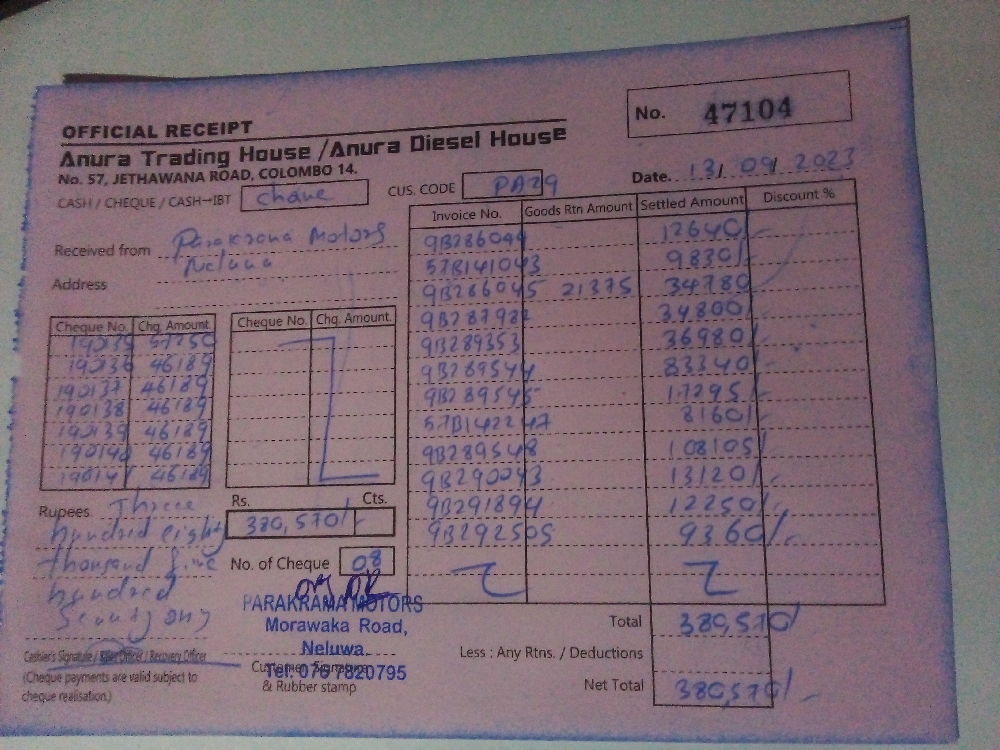 No. 47104
OFFICIAL RECEIPT
Anura Trading House /Anura Diesel House
No. 57, JETHAWANA ROAD, COLOMBO 14.
Date. 13/ 09/ 2023
CASH / CHEQUE / CASH→IBT
CUS. CODE PA29
Received from Parakrama Motors
Neluwa
Address
Invoice No. Goods Rtn Amount Settled Amount Discount %
9B286044 12640/-
57B141043 9830/-
9B286045 21375 34780
9B287982 34800/-
9B289353 36980/-
9B289544 83340/-
9B289545 17295/-
57B142247 8160/-
9B289548 108105/-
9B290043 13120/-
9B291894 12250/-
9B292505 9360/-
Cheque No. Chq. Amount Cheque No. Chq. Amount.
190135 57250
190136 46189
190137 46189
190138 46189
190139 46189
190140 46189
19014 46189
Rs. Cts.
380,570/-
Rupees Three
hundred eighty
thousand five
hundred
seventy only
No. of Cheque 08
PARAKRAMA MOTORS
Morawaka Road,
Neluwa.
Tel: 076 7820795
Total 380,570/
Less : Any Rtns. / Deductions
Net Total 380,570/-
Cashier's Signature / Sales Officer / Recovery Officer
(Cheque payments are valid subject to
cheque realisation.)
Customer Signature
& Rubber stamp